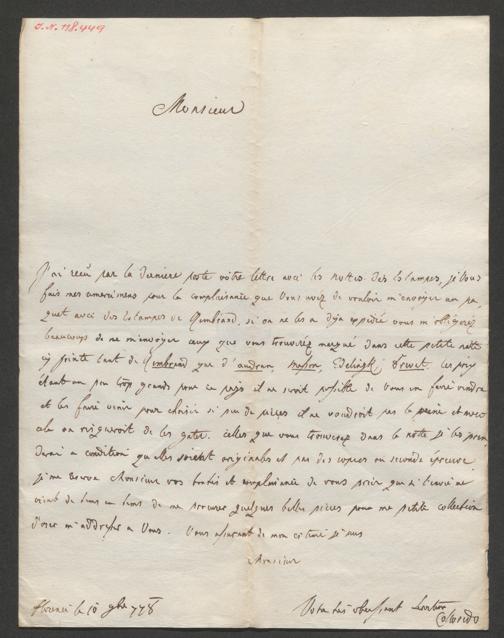 I.N. 118.449
Monsieur
J'ai recu par la derniere poste vôtre lettre avec les nottes des Estampes, je Vous
fais mes remercimens pour la complaisance que Vous avez de vouloir m'envoyer un pa
quet avec des Estampes de Rembrand, si on ne les a deja expediée vous m'obligerez
beaucoup de ne m'envoyer ceux que vous trouverez marqué dans cette petite notte
cy jointe tant de Rembrand que d'audran, masson, Edelinck, Drevet. Les prix
etant un peu trop grands pour ce pays il ne seroit possible de Vous en faire vendre
et les faire venir pour choisir si peu de pieces il ne voudroit pas la peine et avec
cela on risqueroit de les gater. Celles que vous trouverez dans la notte je les pren
derai a condition qu'elles soient originales et pas des copies ou seconde épreuve
je me Monsieur vos bontés et complaisance de vous prier que
de tems en tems de me procurer quelques belles pieces pour ma petite collection
d'oser m'addresser a Vous. Vous assurant de mon estime je suis
Monsieur
Florence le 10 9bre 778
Votre tres obeissant